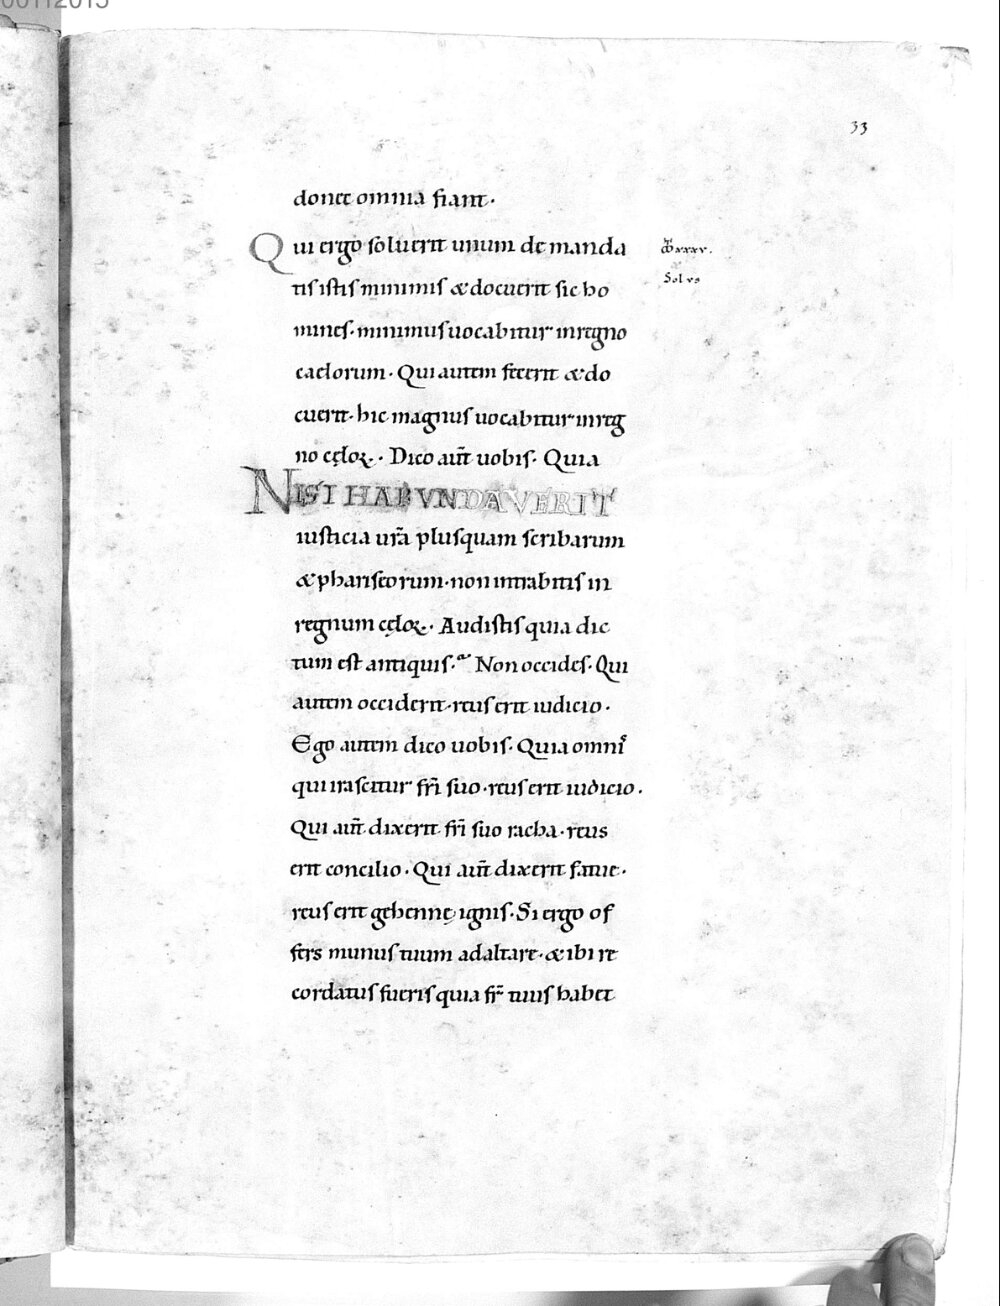 00112015
33
donec omnia fiant.
Qui ergo soluerit unum de manda
tis istis minimis & docuerit sic ho
mines. minimus uocabitur in regno
caelorum. Qui autem fecerit & do
cuerit. hic magnus uocabitur in reg
no cęloꝝ. Dico aut̄ uobis. Quia
xxxv.
Solus
NISI HABVNDAVERIT
iusticia ur̄a plusquam scribarum
& phariseorum. non intrabitis in
regnum cęloꝝ. Audistis quia dic
tum est antiquis. Non occides. Qui
autem occiderit. reus erit iudicio.
Ego autem dico uobis. Quia omnis
qui irascitur fr̄i suo. reus erit iudicio.
Qui aut̄ dixerit fr̄i suo racha. reus
erit concilio. Qui aut̄ dixerit fatue.
reus erit gehennę ignis. Si ergo of
fers munus tuum ad altare. & ibi re
cordatus fueris quia fr̄ tuus habet